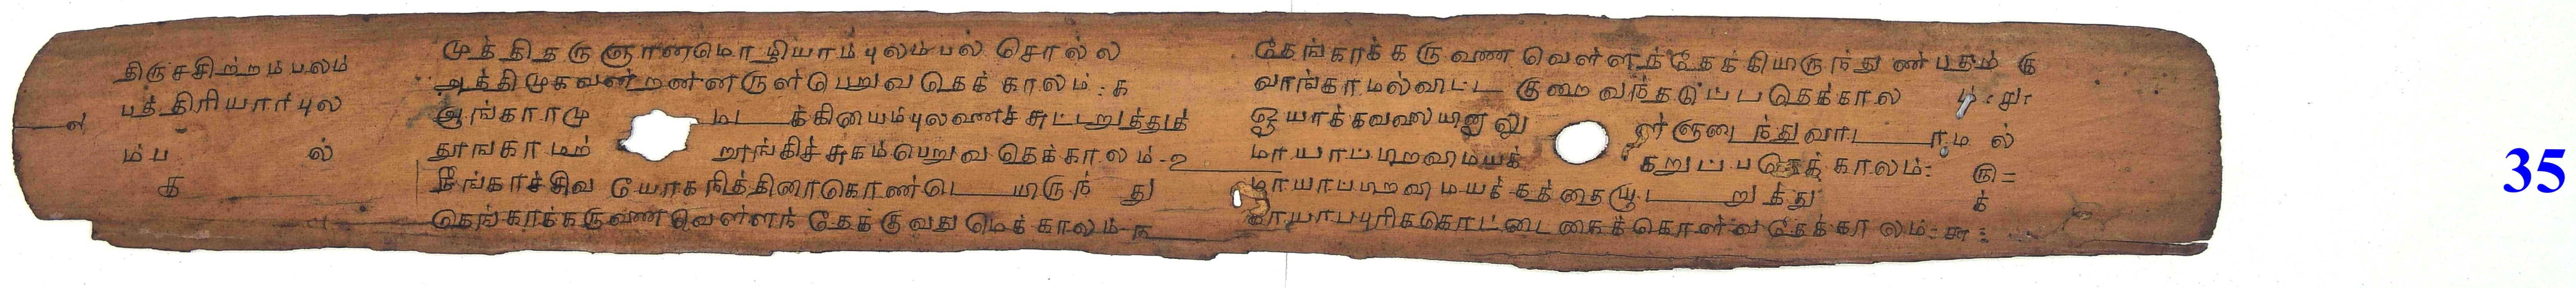 திருசசிற்றம்பலம்
பத்திரியார்புல
ம்ப ல்
க
முத்திதருஞானமொழியாம்புலம்பல் சொல்ல
அத்திமுகவன்றன்னருள்பெறுவதெக்காலம் : க
ஆங்காரமு மடக்கியைம்புலனைச்சுட்டறுத்துத்
தூங்காமற் றூங்கிச்சுகம்பெறுவதெக்காலம் - ௨
நீங்காச்சிவ யோகநித்திரைகொண்டெயிருந் து
தெங்காக்கருணைவெள்ளந் தேக்குவதுமெக்காலம் - ௩
தேங்காக்கருணைவெள்ளந்தேக்கியிருந்துண்பதும் கு
வாங்காமல்விட்ட குறை வந்தடுப்பதெக்கால ம் : ௪ :
ஓயாக்கவலையினுலு ள்ளுடைந்துவாடாம ல்
மாயாப்பிறவிமயக் கறுப்பதெக்காலம் : ௫ =
மாயாபபிறவிமயக்கத்தையூடறுத்து க்
காயாபபுரிககொட்டை கைக்கொள்வதேக்காலம் : ௬ :
35